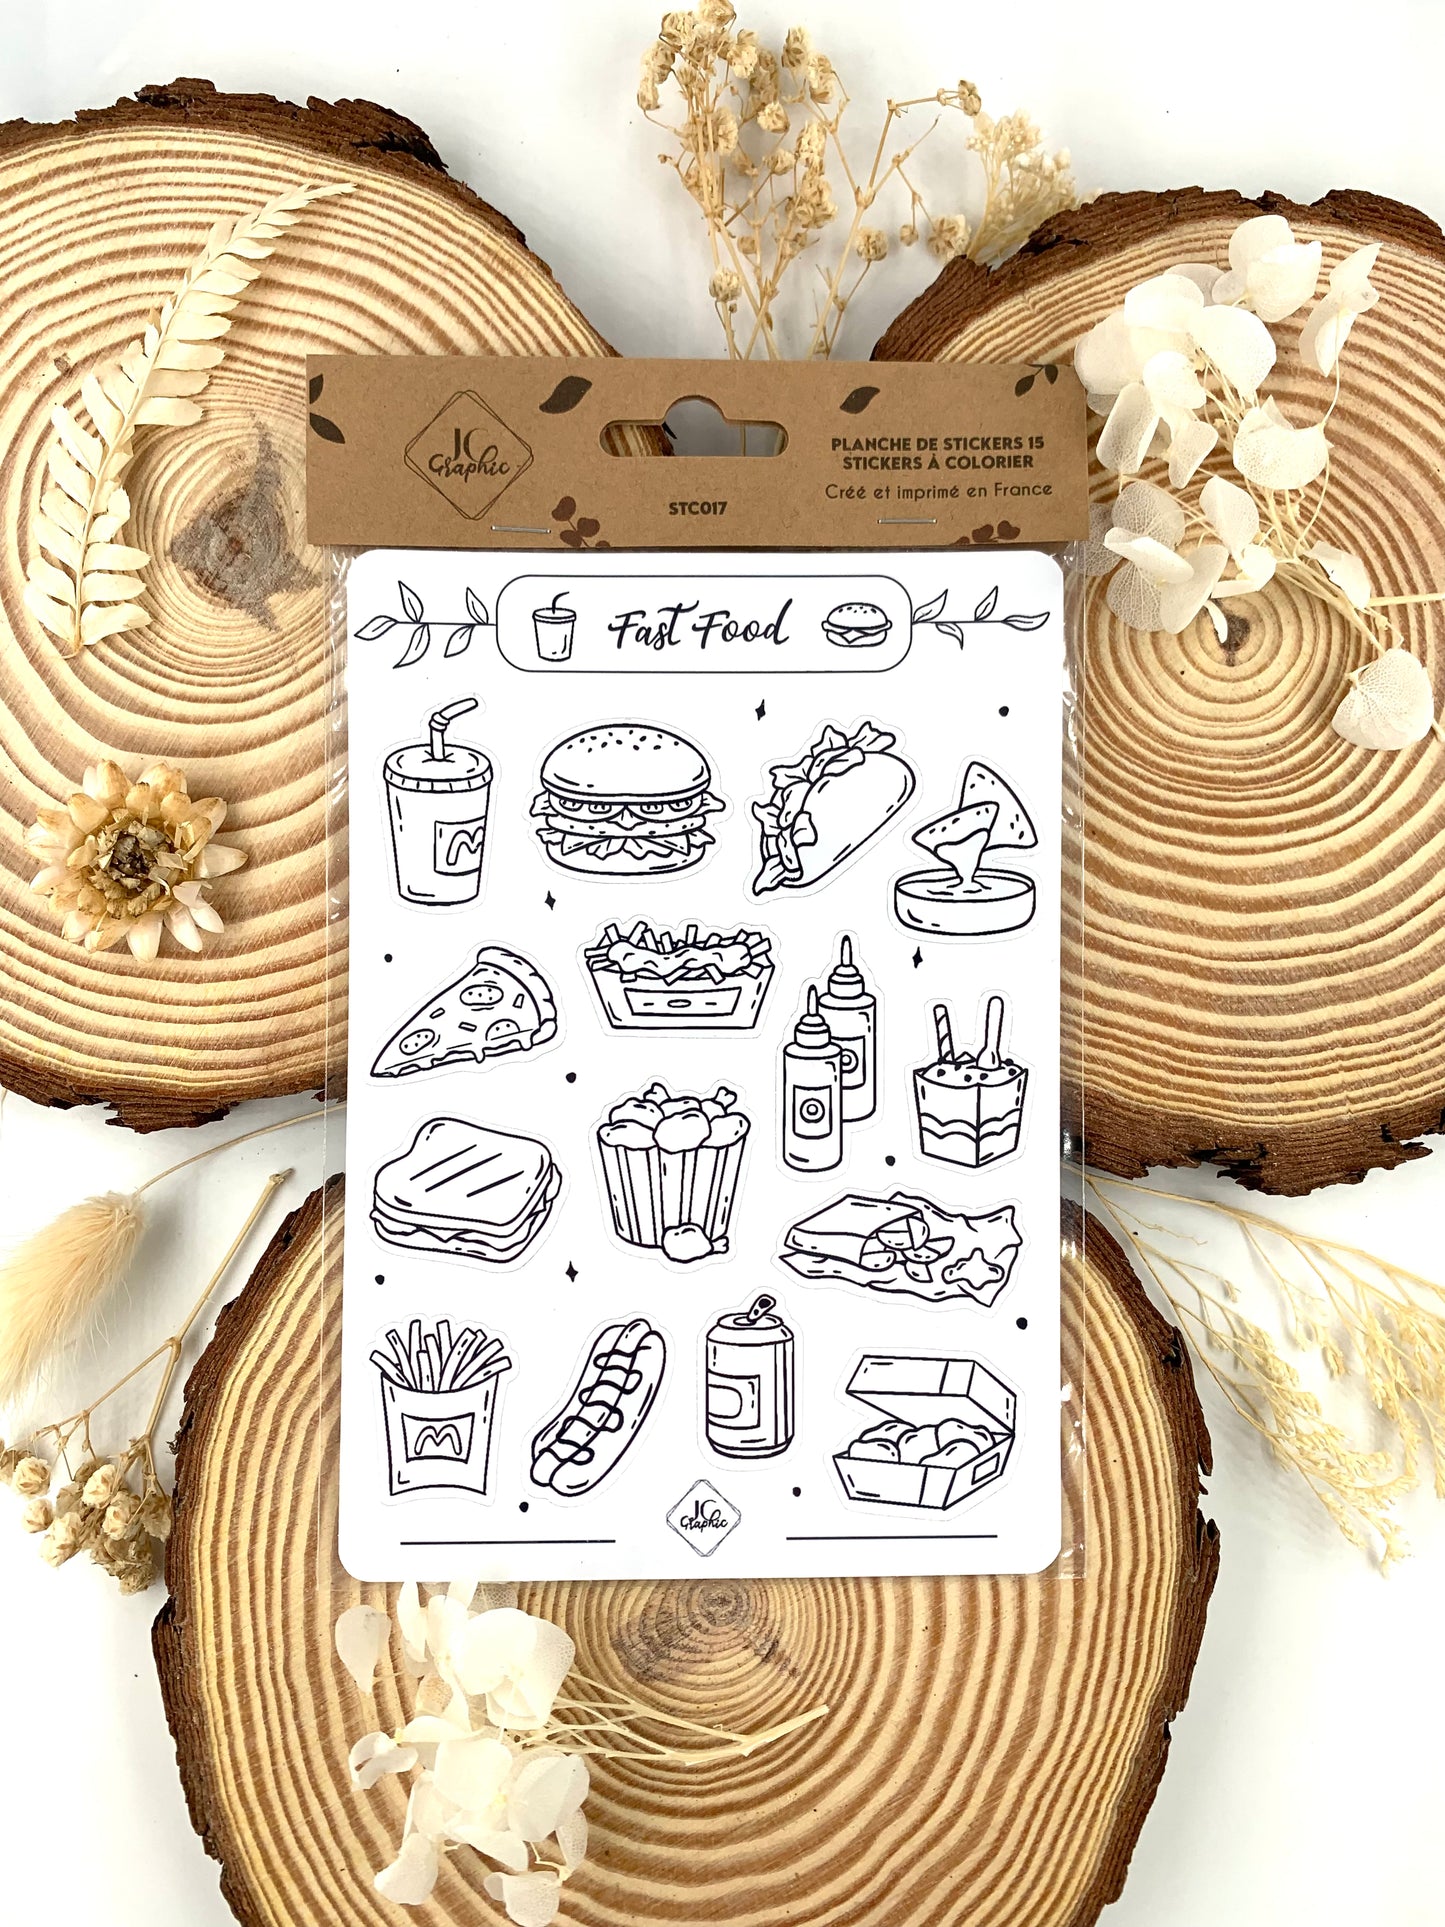 JC
Graphic
PLANCHE DE STICKERS 15
STICKERS À COLORIER
Créé et imprimé en France
STC017
Fast Food
M
M
JC
Graphic